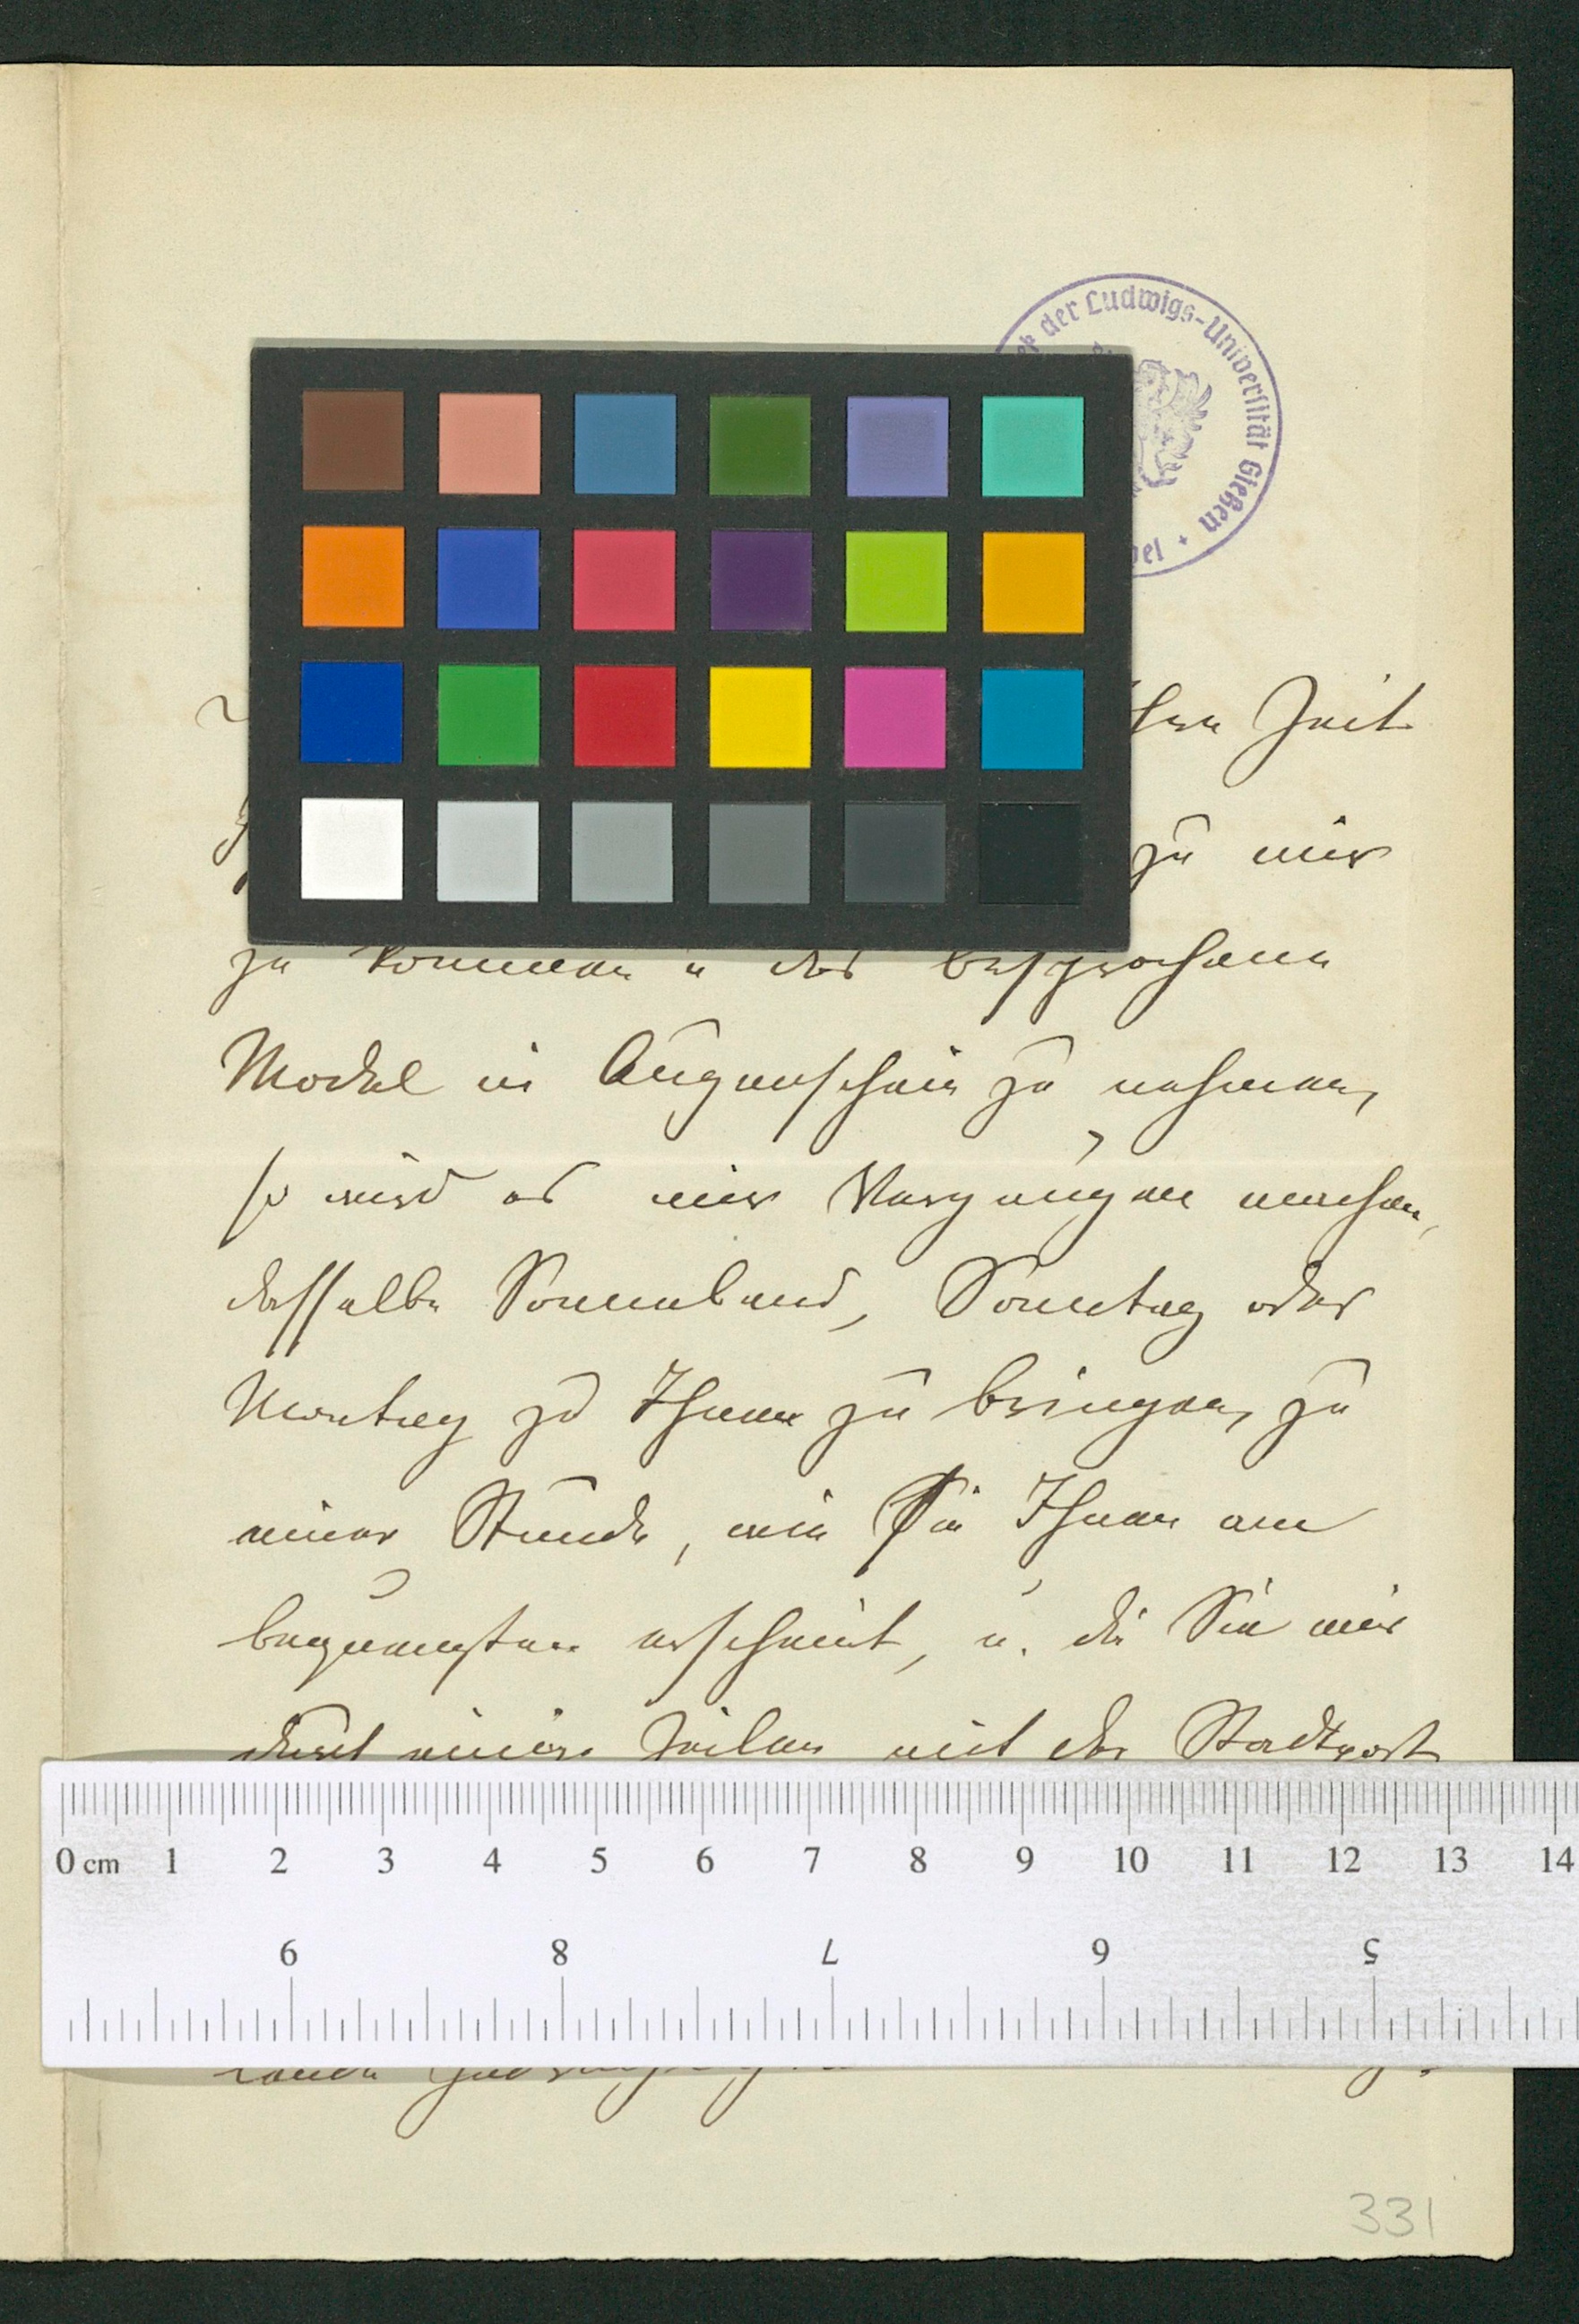 der Ludwigs-Universität Gießen
Zeit
zu mir
zu kommen u das besprochene
Model in Augenschein zu nehmen,
so wird es mir Vergnügen machen,
dasselbe Sonnabend, Sonntag oder
Montag zu Ihnen zu bringen, zu
einer Stunde, wie Sie Ihnen am
bequemsten erscheint, u. die Sie mir
durch einige Zeilen mit der Stadtpost
0 cm 1 2 3 4 5 6 7 8 9 10 11 12 13 14
9 8 7 6 5
331